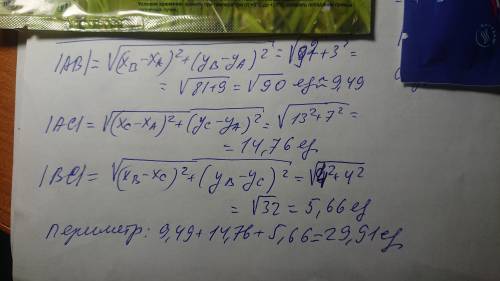 |AB| = √(x_B − x_A)² + (y_B − y_A)² = √9² + 3² =
= √81+9 = √90 ед ≈ 9,49
|AC| = √(x_C − x_A)² + (y_C − y_A)² = √13² + 7² =
= 14,76 ед
|BC| = √(x_B − x_C)² + (y_B − y_C)² = √4² + 4²
= √32 = 5,66 ед
Периметр: 9,49 + 14,76 + 5,66 = 29,91 ед